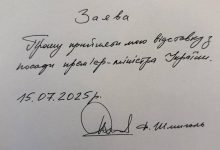 Заява
Прошу прийняти мою відставку з
посади прем'єр-міністра України.
15.07.2025р.
Д. Шмигаль